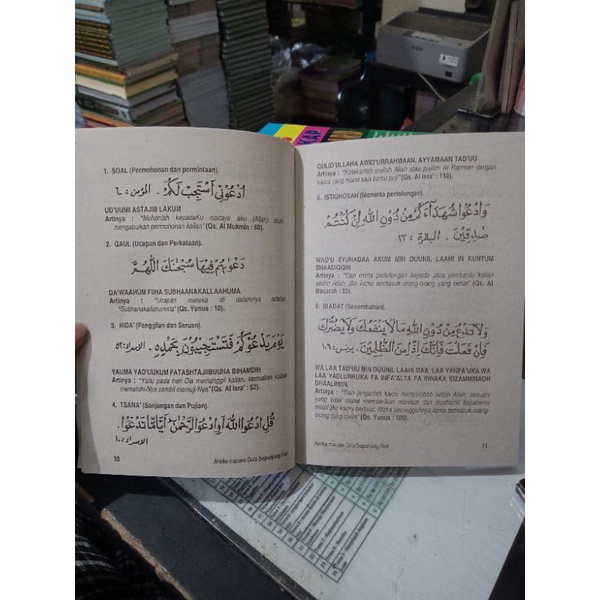 1. SOAL (Permohonan dan permintaan).
ادْعُوْنِيْ أَسْتَجِبْ لَكُمْ . المؤمن : ٦٠
UD'UUNII ASTAJIB LAKUM
Artinya : "Mohonlah kepadaKu niscaya aku (Allah) akan
mengabulkan permohonan kalian" (Qs. Al Mukmin : 60).
2. QAUL (Ucapan dan Perkataan).
دَعْوَاهُمْ فِيْهَا سُبْحٰنَكَ اللّٰهُمَّ
DA'WAAHUM FIIHA SUBHAANAKALLAAHUMA
Artinya : "Ucapan mereka di dalamnya adalah
"Subhanakallahumma" (Qs. Yunus : 10).
3. NIDA' (Panggilan dan Seruan).
يَوْمَ يَدْعُوْكُمْ فَتَسْتَجِيْبُوْنَ بِحَمْدِهِ . الاسراء : ٥٢
YAUMA YAD'UUKUM FATASHTAJIIBUUNA BIHAMDIH
Artinya : "Yaitu pada hari Dia memanggil kalian, kemudian kalian
mematuhi-Nya sambil memuji-Nya" (Qs. Al Isra' : 52).
4. TSANA' (Sanjungan dan Pujian).
قُلِ ادْعُوا اللهَ أَوِ ادْعُوا الرَّحْمٰنَ أَيًّامَّا تَدْعُوْا
الاسراء :
10 Aneka macam Do'a Sepanjang Hari
QULID'ULLAHA AWID'URRAHMAAN, AYYAMAAN TAD'UU
Artinya : "Katakanlah pujilah Allah atau pujilah Ar Rahman dengan
mana saja kamu puji" (Qs. Al Isra' : 110).
5. ISTIGHOSAH (Meminta pertolongan).
وَادْعُوْا شُهَدَآءَكُمْ مِنْ دُوْنِ اللهِ اِنْ كُنْتُمْ
صٰدِقِيْنَ . البقرة : ٢٣
WAD'U SYUHADAA AKUM MIN DUUNIL LAAHI IN KUNTUM
SHAADIQQIN
Artinya : "Dan minta pertolongan kepada para pembantu kalian
selain Allah, jika kamu semasuk orang-orang yang benar" (Qs. Al
Baqarah : 23).
6. IBADAT (Sesembahan).
وَلَا تَدْعُ مِنْ دُوْنِ اللهِ مَا لَا يَنْفَعُكَ وَلَا يَضُرُّكَ
فَاِنْ فَعَلْتَ فَاِنَّكَ اِذًا مِنَ الظّٰلِمِيْنَ . يونس : ١٠٦
WA LAA TAD'UU MIN DUUNIL LAAHI MAA 'LAA YANFA'UKA WA
LAA YADLURRUKA FA INFA'ALTA FA INNAKA IDZAMMINADH
DHAALIMIIN.
Artinya : "Dan janganlah kamu menyembah selain Allah, sesuatu
yang tidak dapat memberikan manfaat dan madharat kepadamu
jika kamu berbuat. Maka sesungguhnya kamu termasuk orang-
orang yang (Qs. Yunus : 106).
Aneka macam Do'a Sepanjang Hari 11